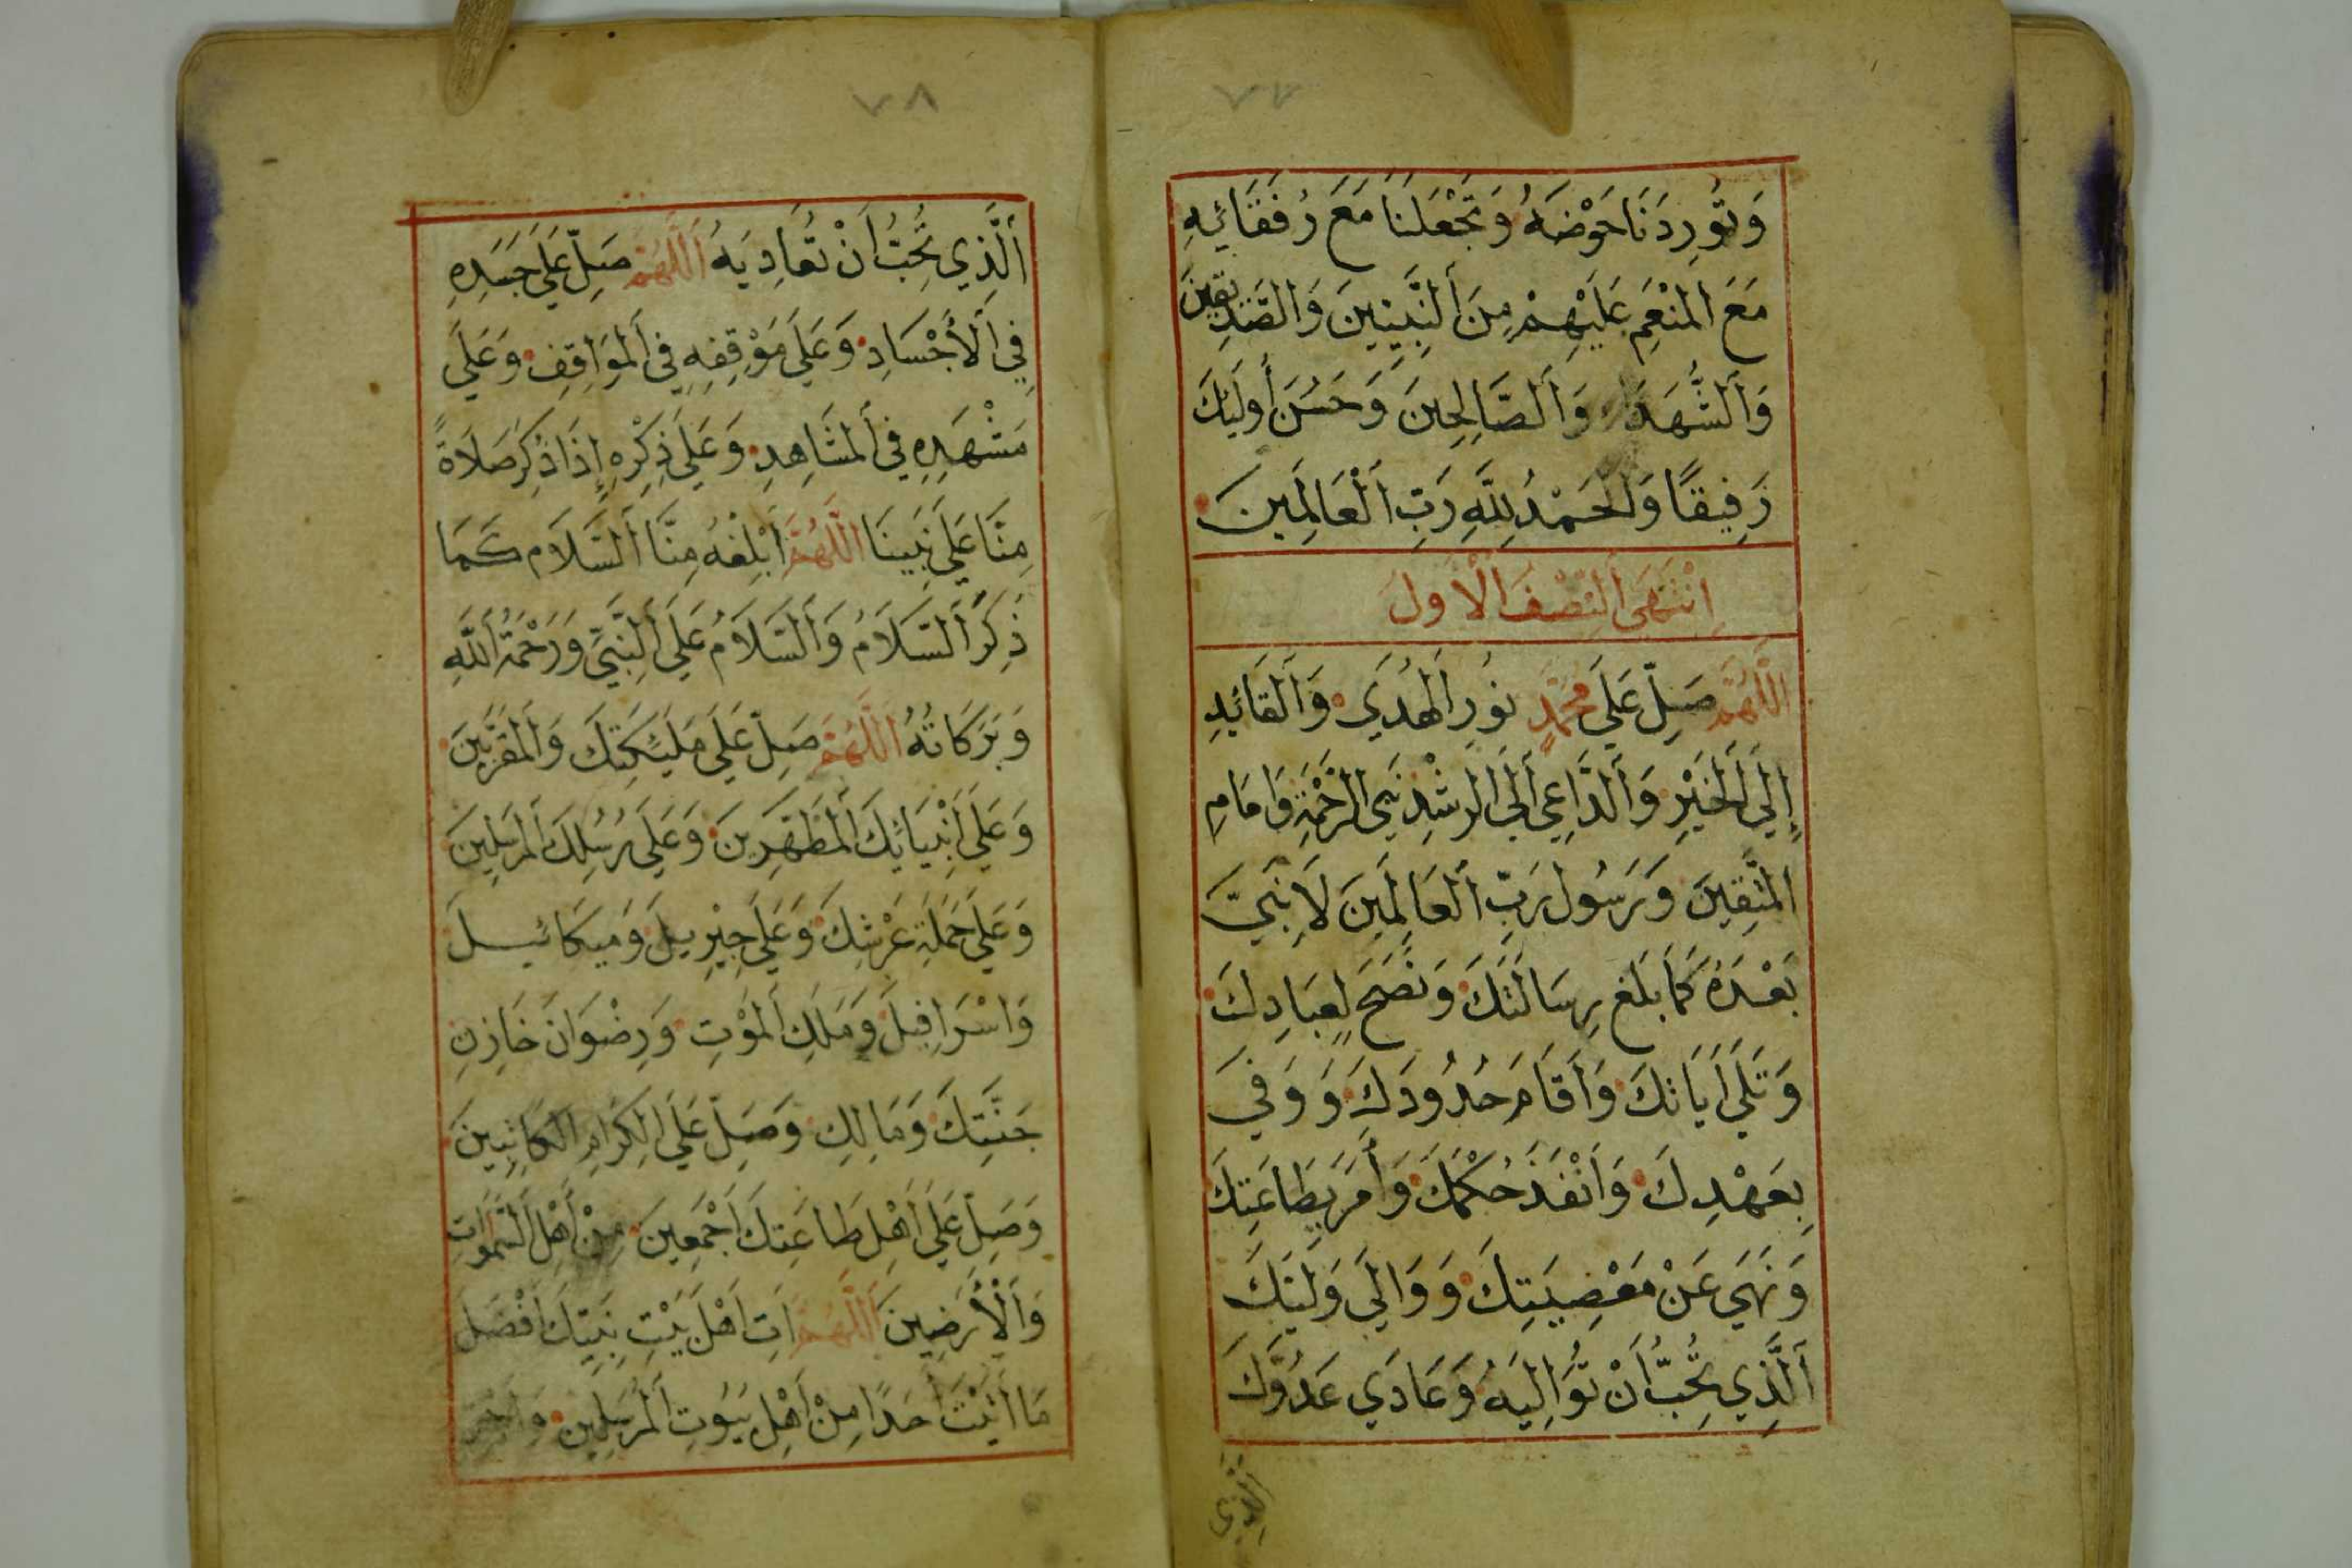 ٧٧
وَتُورِدَنَا حَوْضَهُ وَتَجْعَلَنَا مَعَ رُفَقَائِهِ
مَعَ المُنْعَمِ عَلَيْهِمْ مِنَ اَلنَّبِيِينَ وَالصِّدِيقِينَ
وَاَلشُّهَدَاءِ وَاَلصَّالِحِينَ وَحَسُنَ أُولَئِكَ
رَفِيقًا وَالْحَمْدُ لِلَّهِ رَبِ اَلْعَالَمِينَ
اِنْتَهَى اَلنِّصْفُ الْاَوَلَ
اَللَّهُمَّ صَلِّ عَلَى مُحَمَّدٍ نُورِ اَلهُدَي وَاَلقَائِدِ
إِلَي اَلخَيْرِ وَاَلدَّاعِي اَلَي الرشْدِ نَبِي الرَّحْمَةِ وَامَامِ
المُتَّقِينَ وَرَسُولِ رَبِّ اَلعَالَمِينَ لَا نَبِيَّ
بَعْدَهُ كَمَا بَلَغ رِسَالَتَكَ وَنَصَحَ لِعِبَادِكَ
وَتَلَي اَيَاتكَ وَاَقَامَ حُدُودَكَ وَوَفَي
بِعَهْدِكَ وَاَنْفَذَ حُكْمَكَ وَأَمَرَ بِطَاعَتِكَ
وَنَهَي عَنْ مَعْصِيَتِكَ وَوَالَي وَلِيَّكَ
اَلَّذِي تُحِبُّ اَنْ تُوَالِيَهُ وَعَادَي عَدُوَّكَ
الذي
٧٨
اَلَّذِي تُحِبُّ اَنْ تُعَادِيَهُ اَللَّهُمَّ صَلِّ عَلَي جَسَدِهِ
فِي اَلْأَجْسَادِ وَعَلَي مَوْقِفِهِ فِي اَلمَوَاقِفِ وَعَلَي
مَشْهَدِهِ فِي اَلمَشَاهِدِ وَعَلَي ذِكْرِهِ إِذَا ذُكِرَ صَلَاةً
مِنَّا عَلَي نَبِينَا اَللَّهُمَّ اَبْلِغْهُ مِنَّا اَلسَّلَامَ كَمَا
ذُكِرَ اَلسَّلَامُ وَاَلسَّلَامُ عَلَي اَلنَّبِيِّ وَرَحْمَةُ اَللَّهِ
وَبَرَكَاتُهُ اَللَّهُمَّ صَلِّ عَلَي مَلَيئكَتِكَ وَالمُقَرَّبِينَ
وَعَلَي اَنْبِيَائِكَ اَلمُطَهَّرِينَ وَعَلَي رُسُلِكَ اَلمُرسَلِينَ
وَعَلَي حَمَلَةِ عَرْشِكَ وَعَلَي جِبْرِيلَ وَمِيكَائيلَ
وَاسْرَافِيلَ وَمَلَكِ اَلمَوْتِ وَرِضْوَانَ خَازِنِ
جَنَّتِكَ وَمَالِكِ وَصَلِّ عَلَي الكِرَامِ الكَاتِبِينَ
وَصَلِّ عَلَي اَهْلِ طَاعَتِكَ اَجْمَعِينَ مِنْ أَهْلِ اَلسَّمَوَاتِ
وَاَلْأَرَضِينَ اَللَّهُمَّ اَتِ اَهْلَ بَيْتِ نَبِيِّكَ اَفْضَلَ
مَا اَتَيْتَ اَحَدًا مِنْ اَهْلِ بُيُوتِ اَلمُرسَلِينَ وَاَجْزِ